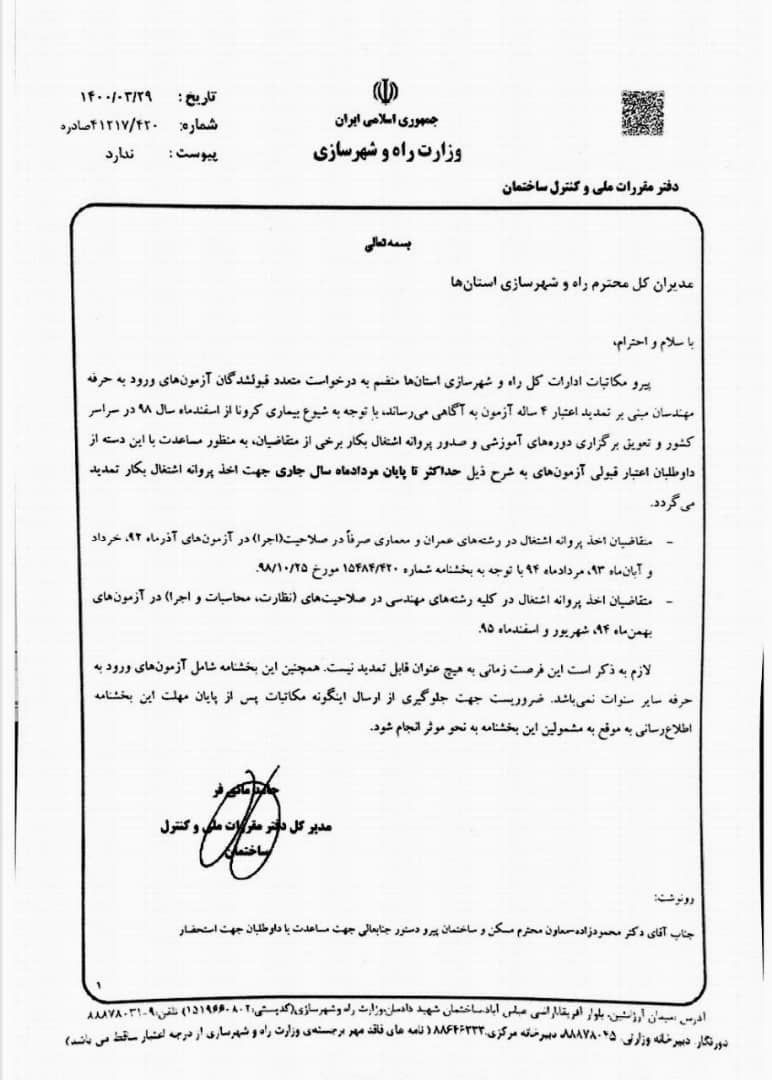 تاریخ : ۱۴۰۰/۰۳/۲۹
شماره: ۴۱۲۱۷/۴۲۰صادره
پیوست : ندارد
جمهوری اسلامی ایران
وزارت راه و شهرسازی
دفتر مقررات ملی و کنترل ساختمان
بسمه تعالی
مدیران کل محترم راه و شهرسازی استان‌ها
با سلام و احترام،
پیرو مکاتبات ادارات کل راه و شهرسازی استان‌ها منضم به درخواست متعدد قبولشدگان آزمون‌های ورود به حرفه
مهندسان مبنی بر تمدید اعتبار ۴ ساله آزمون به آگاهی می‌رساند، با توجه به شیوع بیماری کرونا از اسفندماه سال ۹۸ در سراسر
کشور و تعویق برگزاری دوره‌های آموزشی و صدور پروانه اشتغال بکار برخی از متقاضیان، به منظور مساعدت با این دسته از
داوطلبان اعتبار قبولی آزمون‌های به شرح ذیل حداکثر تا پایان مردادماه سال جاری جهت اخذ پروانه اشتغال بکار تمدید
می‌گردد.
- متقاضیان اخذ پروانه اشتغال در رشته‌های عمران و معماری صرفاً در صلاحیت(اجرا) در آزمون‌های آذرماه ۹۲، خرداد
و آبان‌ماه ۹۳، مردادماه ۹۴ با توجه به بخشنامه شماره ۱۵۴۸۴/۴۲۰ مورخ ۹۸/۱۰/۲۵.
- متقاضیان اخذ پروانه اشتغال در کلیه رشته‌های مهندسی در صلاحیت‌های (نظارت، محاسبات و اجرا) در آزمون‌های
بهمن‌ماه ۹۴، شهریور و اسفندماه ۹۵.
لازم به ذکر است این فرصت زمانی به هیچ عنوان قابل تمدید نیست. همچنین این بخشنامه شامل آزمون‌های ورود به
حرفه سایر سنوات نمی‌باشد. ضروریست جهت جلوگیری از ارسال اینگونه مکاتبات پس از پایان مهلت این بخشنامه
اطلاع‌رسانی به موقع به مشمولین این بخشنامه به نحو موثر انجام شود.
حامد مانی فر
مدیر کل دفتر مقررات ملی و کنترل
ساختمان
رونوشت:
جناب آقای دکتر محمودزاده-معاون محترم مسکن و ساختمان پیرو دستور جنابعالی جهت مساعدت با داوطلبان جهت استحضار
۱
آدرس :میدان آرژانتین، بلوار آفریقا،اراضی عباس آباد،ساختمان شهید دادمان،وزارت راه وشهرسازی(کدپستی:۱۵۱۹۶۶۰۸۰۲) تلفن:۹-۸۸۸۷۸۰۳۱
دورنگار. دبیرخانه وزارتی: ۸۸۸۷۸۰۴۵، دبیرخانه مرکزی:۸۸۶۴۶۲۳۲ ( نامه های فاقد مهر برجسته‌ی وزارت راه و شهرسازی از درجه اعتبار ساقط می باشد)